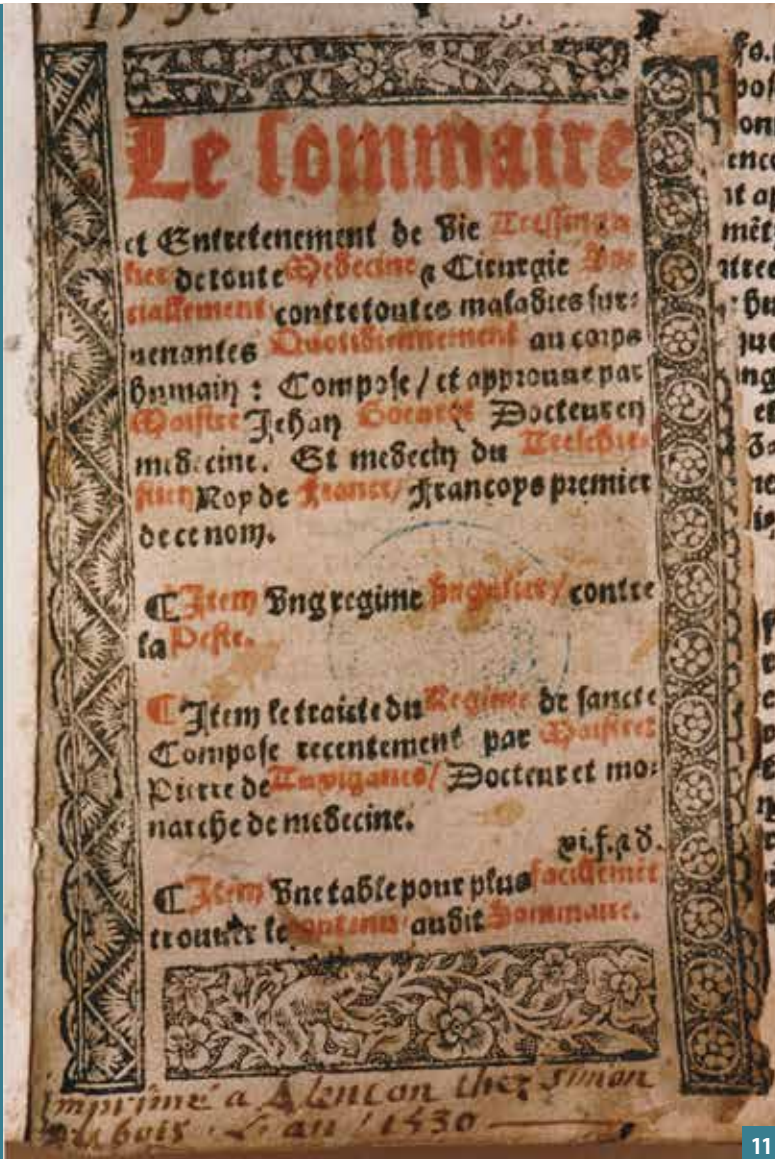 1530
Le sommaire
et Entretenement de Vie Tressingu
lier de toute Medecine & Cirurgie Spe
ciallement contre toutes maladies sur:
uenantes Quotidiennement au corps
humain : Compose / et approuue par
Maistre Jehan Goeurot Docteur en
medecine. Et medecin du Treschre-
stien Roy de France / Francoys premier
de ce nom.
¶ Item Vng regime singulier / contre
la Peste.
¶ Item le traicte du Regime de sancte
Compose recentement par Maistre
Pierre de / Docteur et mo:
narche de medecine.
vi.f.& d.
¶ Item Vne table pour plus facillemēt
trouuer le contenu audit Sommaire.
imprimé a Alencon chez simon
dubois L'an 1530
11